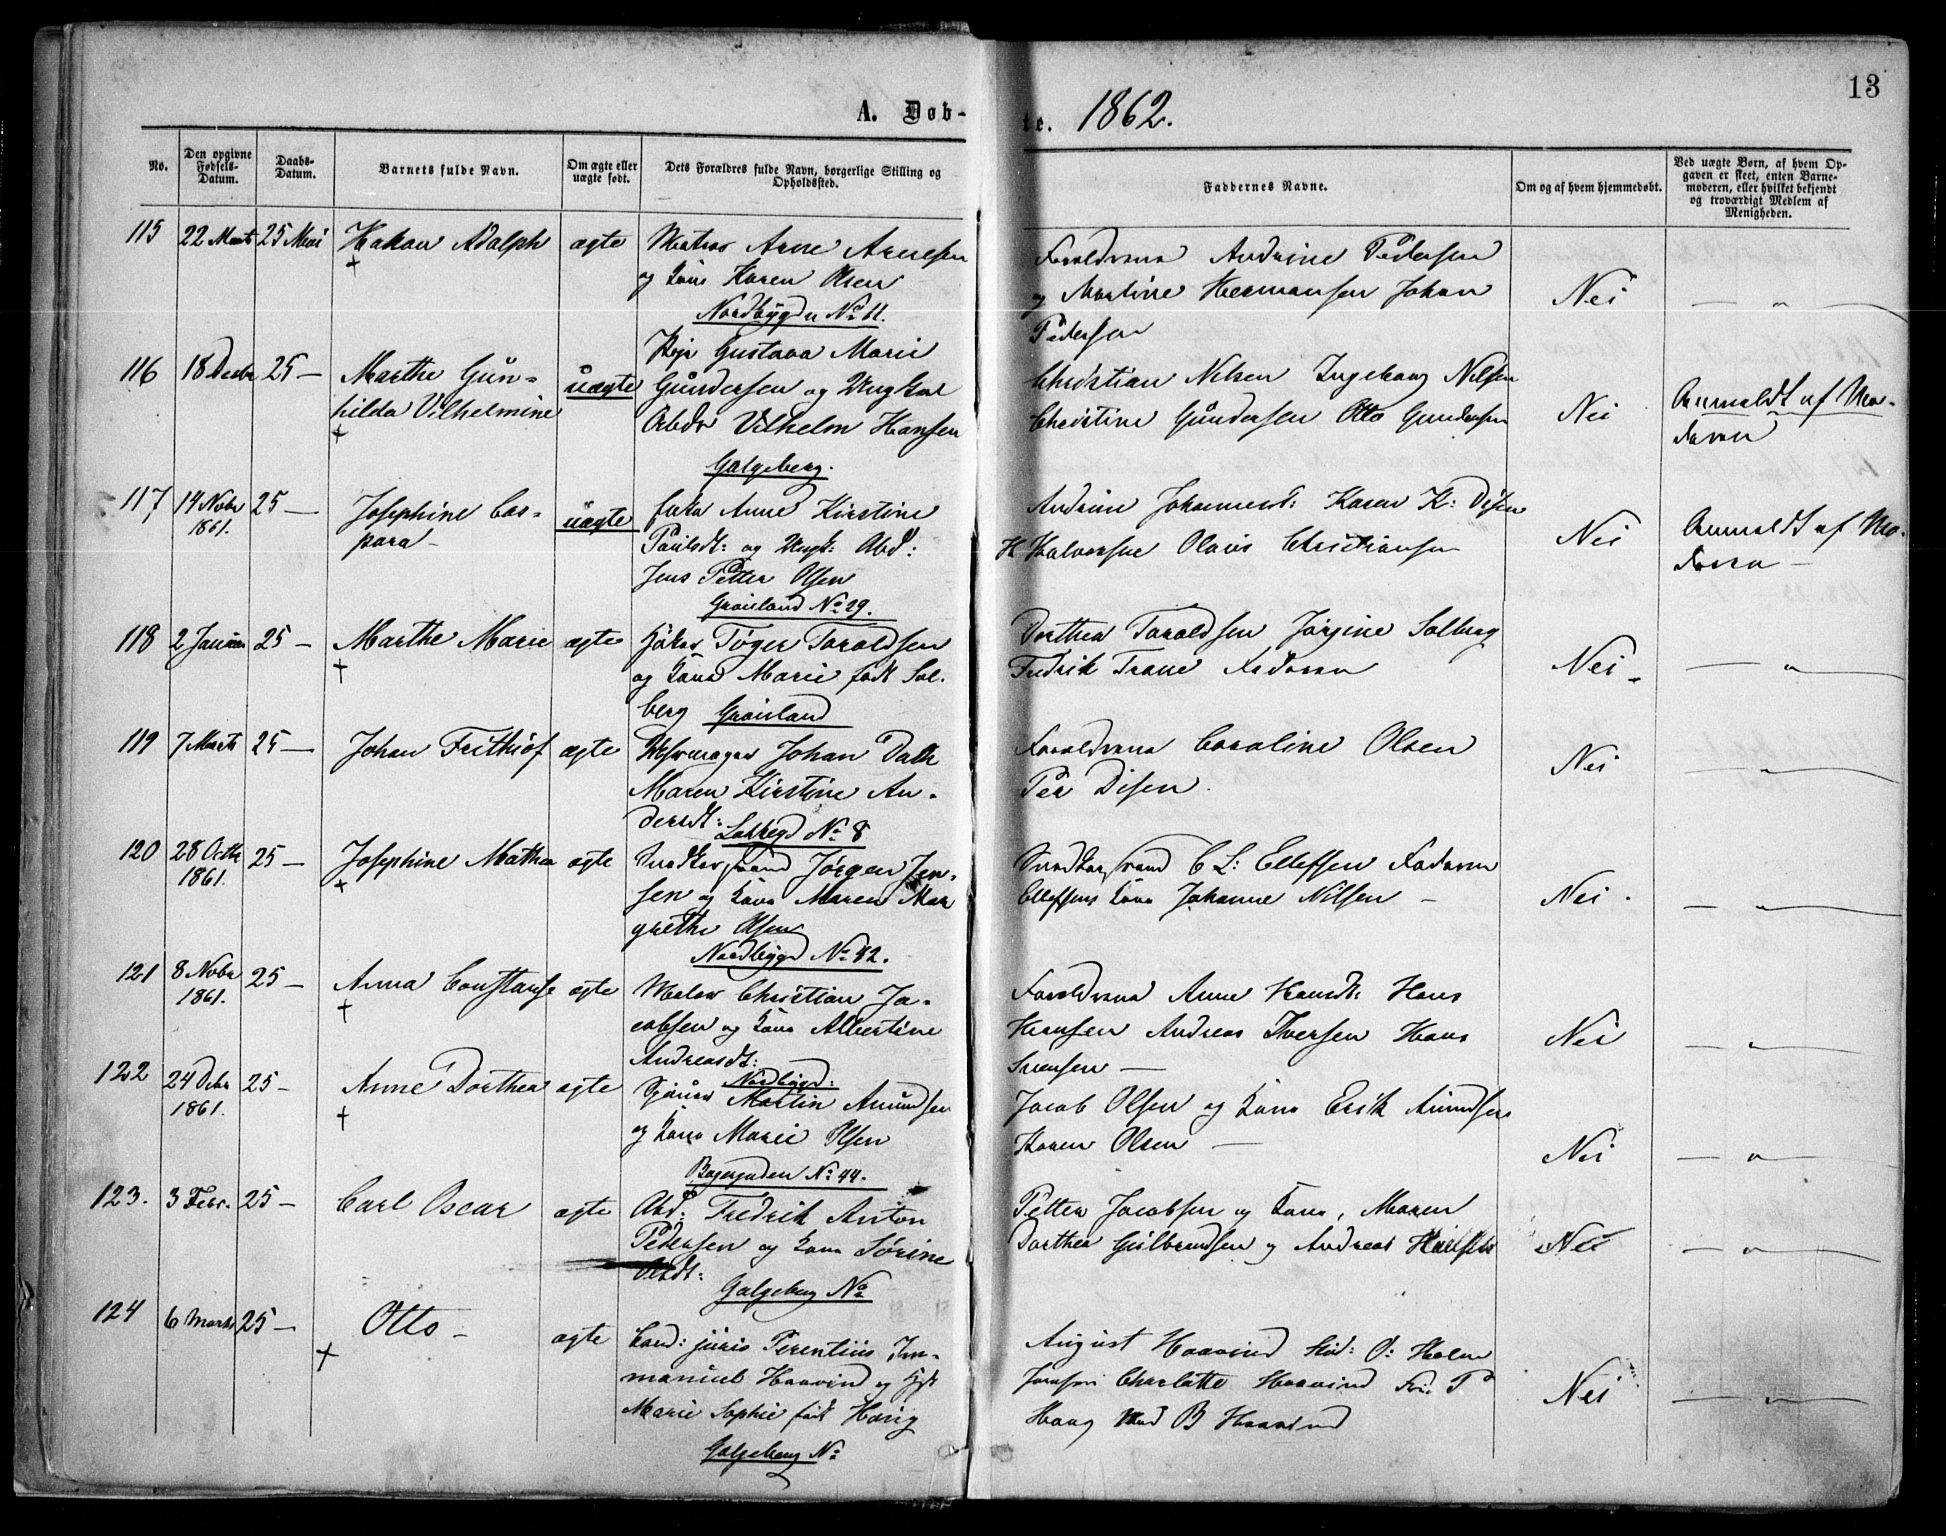 13
A. Døb-te. 1862.
No.
Den opgivne Fødsels-Datum.
Daabs-Datum.
Barnets fulde Navn.
Om ægte eller uægte født.
Dets Forældres fulde Navn, borgerlige Stilling og Opholdssted.
Faddernes Navne.
Om og af hvem hjemmedøbt.
Ved uægte Børn, af hvem Op-
gaven er skeet, enten Barne-
moderen, eller hvilket bekjendt
og troværdigt Medlem af
Menigheden.
115 22 Marts 25 Mai Hakon Adolph ægte Matros Arne Arnesen
og Kone Karen Olsen
Nordbygd No 11.
Forældrene Andrine Pedersen
og Martine Hermansen Johan
Pedersen
Nei
116 18 Decbr 25 — Marthe Gun-
hilda Vilhelmine
uægte
Pige Gustava Marie
Gundersen og Ungkarl
Arbdr Vilhelm Hansen
Galgeberg.
Christian Nilsen Ingeborg Nilsen
Christine Gundersen Otto Gundersen
Nei
Anmeldt af Mo-
deren
117 14 Novbr 1861. 25 — Josephine Cas-
para —
uægte
Enke Anne Kirstine
Paulsdt: og Ungk: Abd:
Jens Petter Olsen
Grønland No 29.
Andrine Johannesd: Karen K: Disen
H Halvorsen Olavis Christiansen
Nei
Anmeldt af Mo-
deren —
118 2 Januar 25 — Marthe Marie ægte
Tøger Taroldsen
og Kone Marie født Sol-
berg Grønland
Dorthea Taroldsen Jørgine Solberg
Fredrik Trane Faderen
Nei -
119 7 Marts 25 — Johan Frithiof ægte
Johan Dahl
Maren Kirstine An-
dersdt: Lakkegd No 8
Forældrene Caroline Olsen
Per Disen.
Nei
120 28 Octbr 1861. 25 — Josephine Mathea ægte
Snedkersvend Jørgen Jen-
sen og Kone Maren Mar
grethe Olsen
Nordbygd No 42.
Snedkersvend C L: Ellefsen Faderen
Ellefsens Kone Johanne Nilsen —
Nei.
121 8 Novbr 1861. 25 — Anna Constanse ægte
Maler Christian Ja-
cobsen og Kone Albertine
Andreasdt:
Nordbygd:
Forældrene Anne Hansdt: Hans
Hansen Andreas Iversen Hans
Svensen —
Nei
122 24 Debr 1861. 25 - Anne Dorthea ægte
Martin Amundsen
og Kone Marie Olsen
Bagergaden No 44.
Jacob Olsen og Kone Erik Amundsen
Karen Olsen —
Nei
123. 3 Febr. 25 — Carl Oscar ægte
Abd: Fredrik Anton
Pedersen og Kone Sørine
Olsdt:
Galgeberg No
Petter Jacobsen og Kone, Maren
Dorthea Gulbrandsen og Andreas
Nei
124 6 Marts 25 — Otto — ægte
Cand: juris Terentius Im-
manuel Haavind og Hst
Marie Sophie født Hørig
Galgeberg No
August Haavind Stud: O: Holm
Charlotte Haavind T
Haag B Haavind
Nei